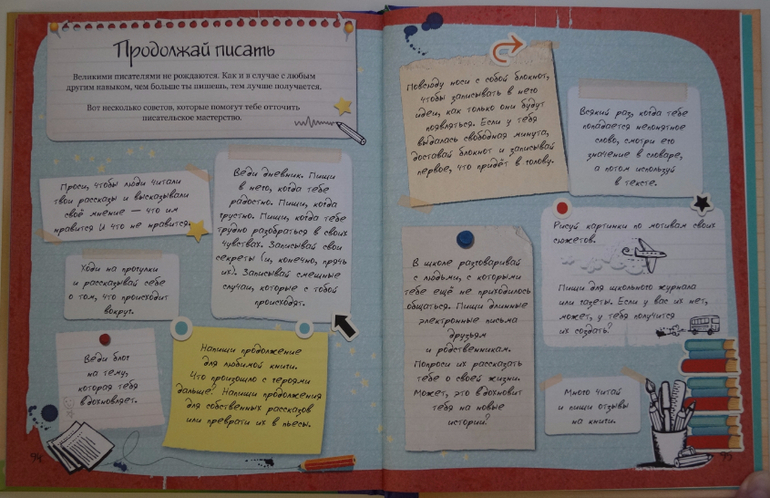 Продолжай писать
Великими писателями не рождаются. Как и в случае с любым
другим навыком, чем больше ты пишешь, тем лучше получается.
Вот несколько советов, которые помогут тебе отточить
писательское мастерство.
Проси, чтобы люди читали
твои рассказы и высказывали
своё мнение — что им
нравится И что не нравится.
Веди дневник. Пиши
в него, когда тебе
радостно. Пиши, когда
грустно. Пиши, когда тебе
трудно разобраться в своих
чувствах. Записывай свои
секреты (и, конечно, прячь
их). Записывай смешные
случаи, которые с тобой
происходят.
Ходи на прогулки
и рассказывай себе
о том, что происходит
вокруг.
Веди блог
на тему,
которая тебя
вдохновляет.
Напиши продолжение
для любимой книги.
Что произошло с героями
дальше? Напиши продолжения
для собственных рассказов
или преврати их в пьесы.
94
Повсюду носи с собой блокнот,
чтобы записывать в него
идеи, как только они будут
появляться. Если у тебя
выдалась свободная минута,
доставай блокнот и записывай
первое, что придёт в голову.
Всякий раз, когда тебе
попадается непонятное
слово, смотри его
значение в словаре,
а потом используй
в тексте.
В школе разговаривай
с людьми, с которыми
тебе ещё не приходилось
общаться. Пиши длинные
электронные письма
друзьям
и родственникам.
Попроси их рассказать
тебе о своей жизни.
Может, это вдохновит
тебя на новые
истории?
Рисуй картинки по мотивам своих
сюжетов.
Пиши для школьного журнала
или газеты. Если у вас их нет,
может, у тебя получится
их создать?
Много читай
и пиши отзывы
на книги.
95